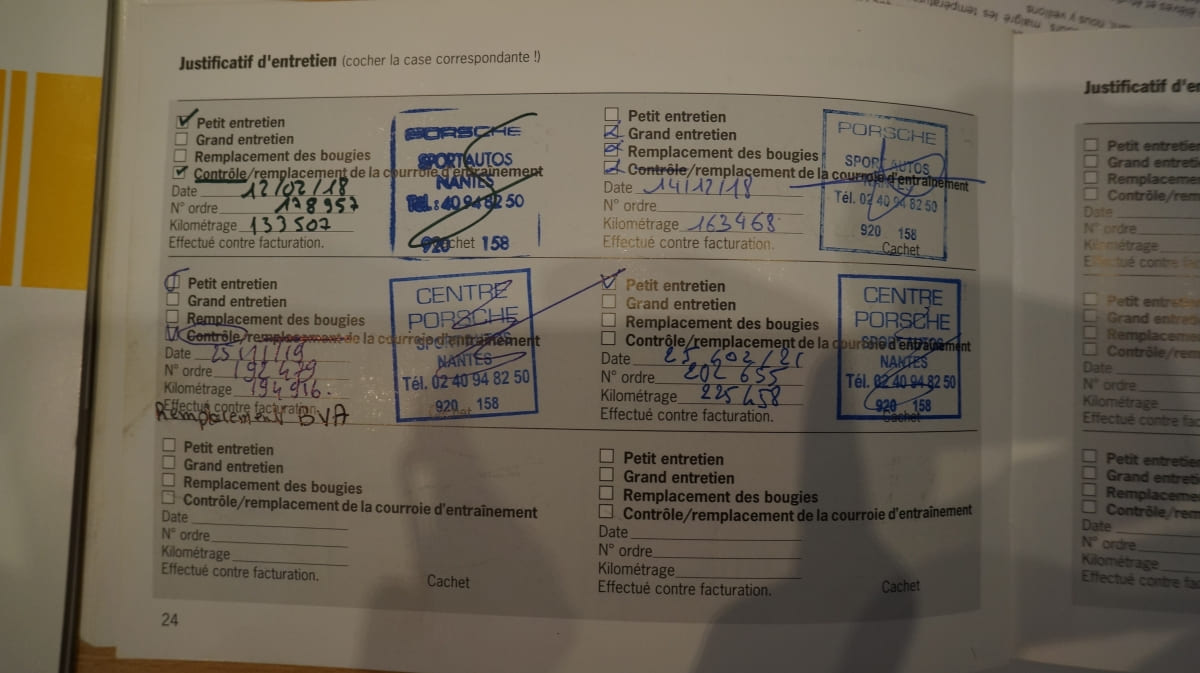 Justificatif d'entretien (cocher la case correspondante !)
Petit entretien
Grand entretien
Remplacement des bougies
Contrôle/remplacement de la courroie d'entraînement
Date 12/02/18
N° ordre 178957
Kilométrage 133507
Effectué contre facturation.
Cachet
PORSCHE
SPORTAUTOS
NANTES
Tél.: 40 94 82 50
920 158
Petit entretien
Grand entretien
Remplacement des bougies
Contrôle/remplacement de la courroie d'entraînement
Date 14/12/18
N° ordre
Kilométrage 163468
Effectué contre facturation.
Cachet
PORSCHE
SPORT AUTOS
NANTES
Tél. 02 40 94 82 50
920 158
Petit entretien
Grand entretien
Remplacement des bougies
Contrôle/remplacement de la courroie d'entraînement
Date 25/11/19
N° ordre 192479
Kilométrage 194916.
Effectué contre facturation.
BVA
CENTRE
PORSCHE
SPORT AUTOS
NANTES
Tél. 02 40 94 82 50
920 158
Cachet
Petit entretien
Grand entretien
Remplacement des bougies
Contrôle/remplacement de la courroie d'entraînement
Date
N° ordre 202 655
Kilométrage 225458
Effectué contre facturation.
CENTRE
PORSCHE
SPORT AUTOS
NANTES
Tél. 02 40 94 82 50
920 158
Cachet
Petit entretien
Grand entretien
Remplacement des bougies
Contrôle/remplacement de la courroie d'entraînement
Date
N° ordre
Kilométrage
Effectué contre facturation.
Cachet
Petit entretien
Grand entretien
Remplacement des bougies
Contrôle/remplacement de la courroie d'entraînement
Date
N° ordre
Kilométrage
Effectué contre facturation.
Cachet
24
Justificatif d'e
Petit entretien
Grand entretie
Remplacemen
Contrôle/rem
Date
N° ordre
Kilométrage
Effectué contre fa
Petit entretien
Grand entretien
Remplacemen
Contrôle/rem
Date
N° ordre
Kilométrage
Effectué contre fa
Petit entretien
Grand entretien
Remplacemen
Contrôle/rem
Date
N° ordre
Kilométrage
Effectué contre fa